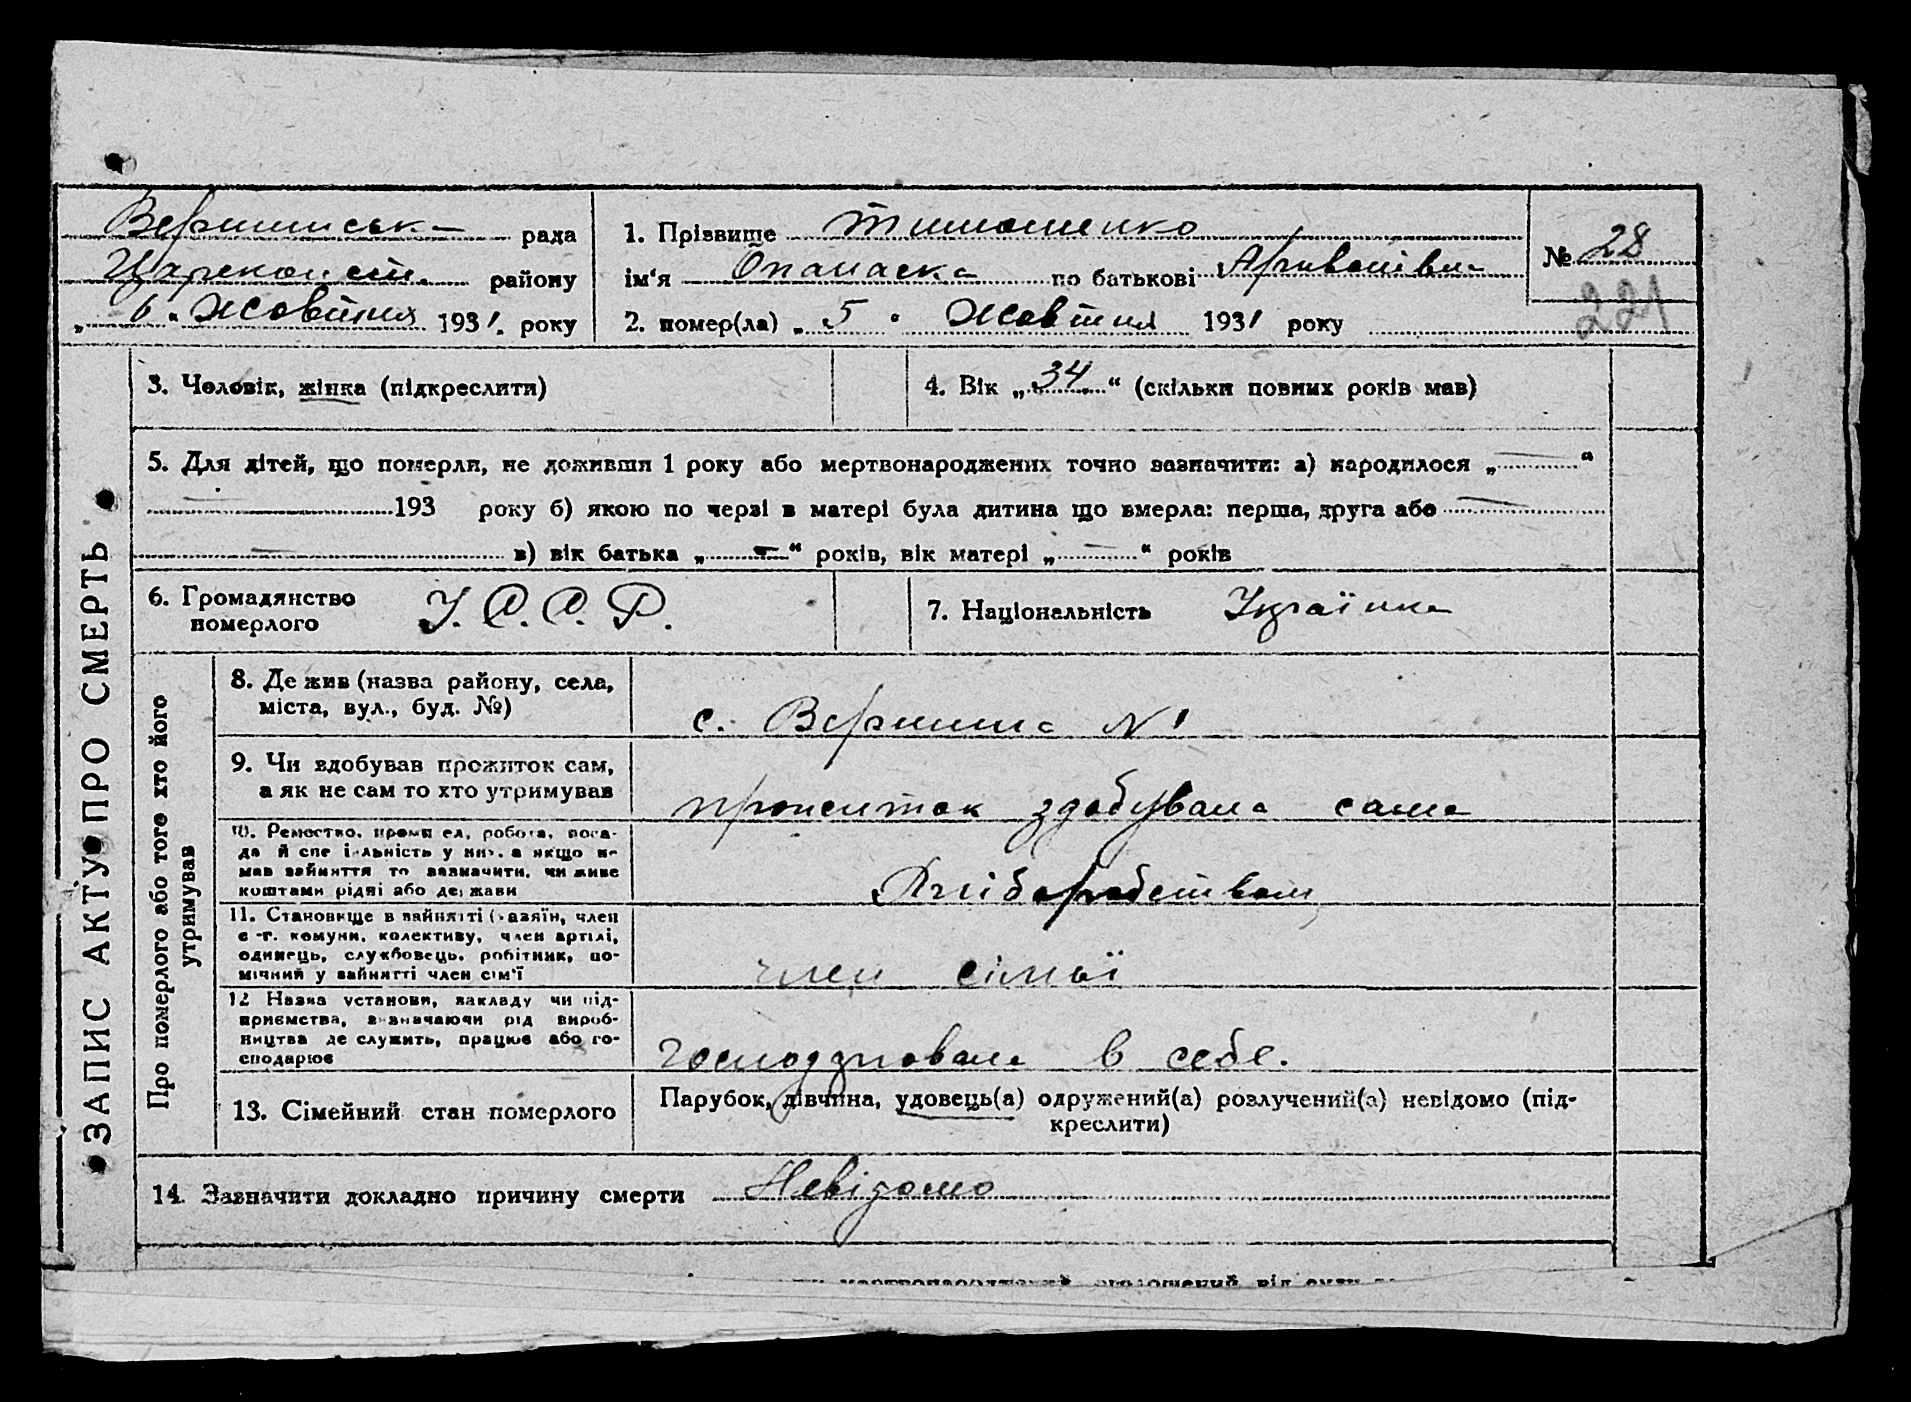 ЗАПИС АКТУ ПРО СМЕРТЬ
Вершинська рада
району
„ 6 " Жовтня 1931. року
1. Прізвище Тимошенко
ім‘я Опанаска по батькові
2. помер(ла) „ 5 " Жовтня 1931 року
№ 28
221
3. Чоловік, жінка (підкреслити)
4. Вік „ 34 “ (скільки повних років мав)
5. Для дітей, що померли, не доживши 1 року або мертвонароджених точно зазначити: а) народилося „ — “
— 193 року б) якою по черзі в матері була дитина що вмерла: перша, друга або —
— в) вік батька „ — “ років, вік матері „ — “ років
6. Громадянство
померлого У. С. С. Р.
7. Національність Українка
Про померлого або того хто його
утримував
8. Де жив (назва району, села,
міста, вул., буд. №)
с. Вершина № 1
9. Чи здобував прожиток сам,
а як не сам то хто утримував
прожиток здобувала сама
10. Ремество, промисел, робота, поса-
да й спеціяльність у них, а якщо не
мав зайняття то зазначити, чи живе
коштами рідні або держави
Хліборобством
11. Становище в зайнятті (хазяїн, член
с.-г. комуни, колективу, член артілі,
одинець, службовець, робітник, по-
мічний у зайнятті член сім'ї
член сімьї
12 Назва установи, закладу чи під-
приємства, зазначаючи рід вироб-
ництва де служить, працює або го-
сподарює
господарювала в себе.
13. Сімейний стан померлого
Парубок, дівчина, удовець(а) одружений(а) розлучений(а) невідомо (під-
креслити)
14. Зазначити докладно причину смерти Невідомо